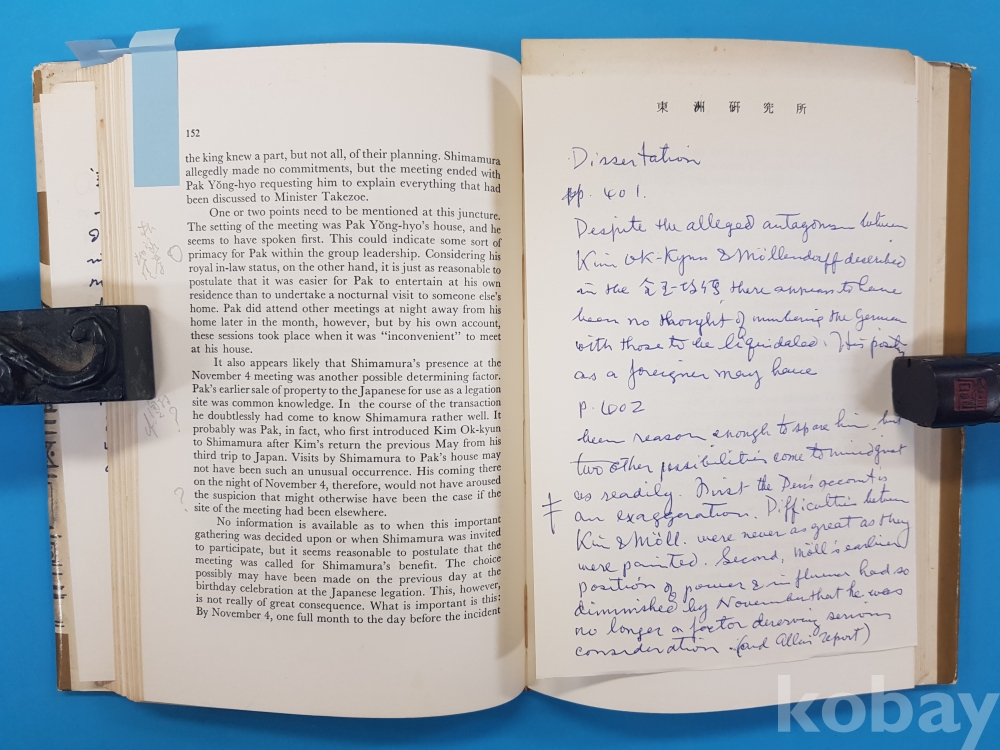 152
the king knew a part, but not all, of their planning. Shimamura
allegedly made no commitments, but the meeting ended with
Pak Yŏng-hyo requesting him to explain everything that had
been discussed to Minister Takezoe.
One or two points need to be mentioned at this juncture.
The setting of the meeting was Pak Yŏng-hyo's house, and he
seems to have spoken first. This could indicate some sort of
primacy for Pak within the group leadership. Considering his
royal in-law status, on the other hand, it is just as reasonable to
postulate that it was easier for Pak to entertain at his own
residence than to undertake a nocturnal visit to someone else's
home. Pak did attend other meetings at night away from his
home later in the month, however, but by his own account,
these sessions took place when it was "inconvenient" to meet
at his house.
It also appears likely that Shimamura's presence at the
November 4 meeting was another possible determining factor.
Pak's earlier sale of property to the Japanese for use as a legation
site was common knowledge. In the course of the transaction
he doubtlessly had come to know Shimamura rather well. It
probably was Pak, in fact, who first introduced Kim Ok-kyun
to Shimamura after Kim's return the previous May from his
third trip to Japan. Visits by Shimamura to Pak's house may
not have been such an unusual occurrence. His coming there
on the night of November 4, therefore, would not have aroused
the suspicion that might otherwise have been the case if the
site of the meeting had been elsewhere.
No information is available as to when this important
gathering was decided upon or when Shimamura was invited
to participate, but it seems reasonable to postulate that the
meeting was called for Shimamura's benefit. The choice
possibly may have been made on the previous day at the
birthday celebration at the Japanese legation. This, however,
is not really of great consequence. What is important is this:
By November 4, one full month to the day before the incident
?
?
東洲硏究所
Dissertation
pp. 401.
Despite the alleged antagonism between
Kim OK-Kyun & Möllendorff described
in the there appears to have
been no thought of numbering the German
with those to be liquidated. His position
as a foreigner may have
p. 402
been reason enough to spare him, but
two other possibilities come to mind just
as readily. First the account is
an exaggeration. Difficulties between
Kim & Möll. were never as great as they
were painted. Second, Möll's earlier
position of power & influence had so
diminished by November that he was
no longer a factor deserving serious
consideration. (and Allen's report)
kobay